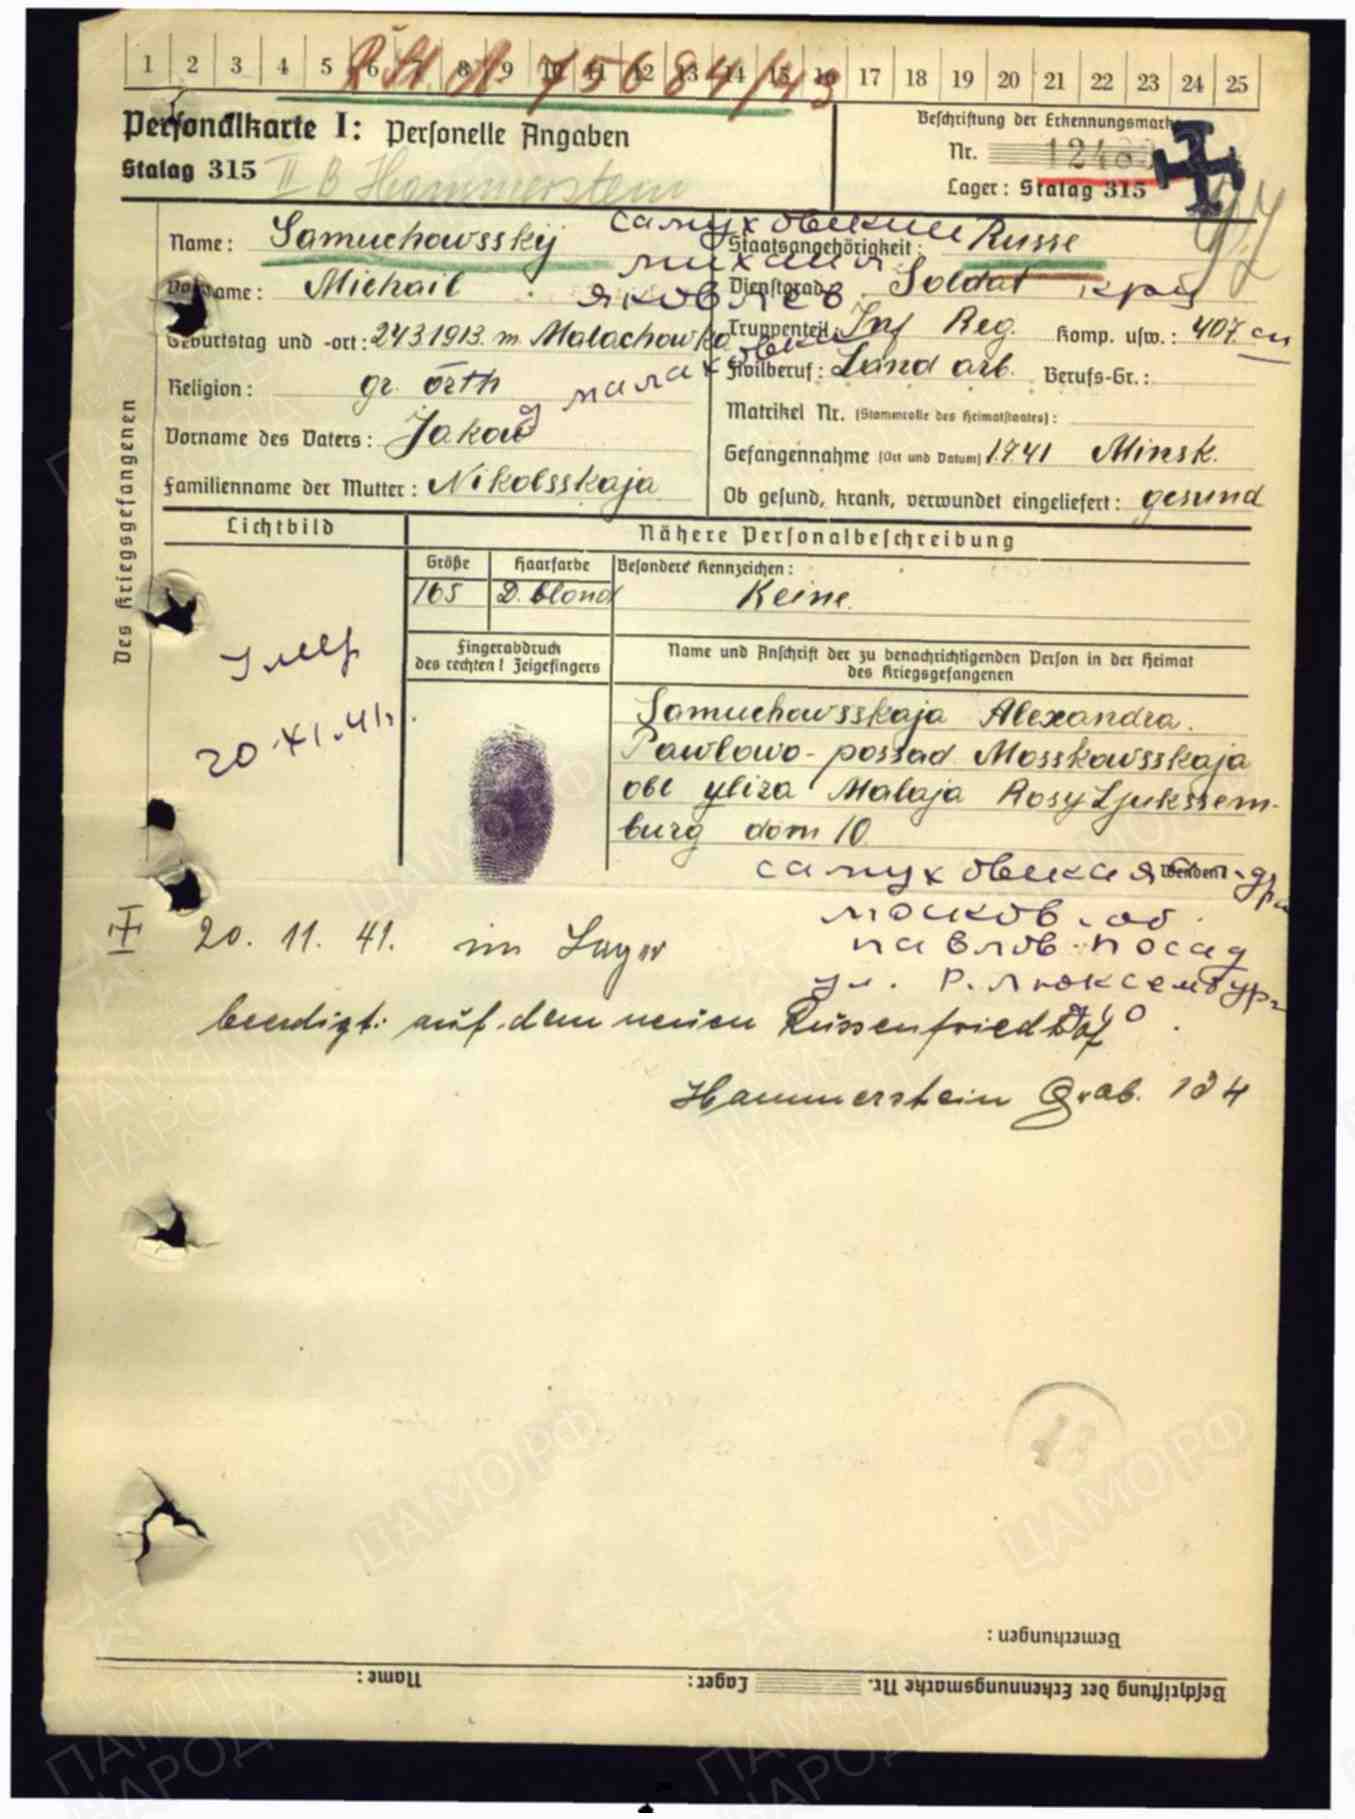 1 2 3 4 5 6 7 8 9 10 11 12 13 14 15 16 17 18 19 20 21 22 23 24 25
75684/43
Personalkarte I: Personelle Angaben
Beschriftung der Erkennungsmarke
Stalag 315 II B Hammerstein
Nr.
Lager: Stalag 315
Des Kriegsgefangenen
Name: Samuchowsskij
самуховский
Staatsangehörigkeit: Russe
Vorname: Michail
михаил
Dienstgrad: Soldat
яковлев
Geburtstag und -ort: 24.3.1913. m. Malachowko
Truppenteil: Inf Reg. Komp. usw.: 407. сп
Religion: gr. orth
малаховка
Zivilberuf: Land arb. Berufs-Gr.:
Matrikel Nr. (Stammrolle des Heimatstaates):
Vorname des Vaters: Jakow
Gefangennahme (Ort und Datum) 1.7.41 Minsk.
Familienname der Mutter: Nikolsskaja
Ob gesund, krank, verwundet eingeliefert: gesund
Lichtbild
Nähere Personalbeschreibung
Größe Haarfarbe Besondere Kennzeichen:
165 D. blond Keine.
умер
20.XI.41г.
Fingerabdruck
des rechten! Zeigefingers
Name und Anschrift der zu benachrichtigenden Person in der Heimat
des Kriegsgefangenen
Samuchowsskaja Alexandra.
Pawlowo-possad Mosskowsskaja
obl yliza Malaja Rosy Ljukssem-
burg dom 10
Wenden!
самуховская
москов. об.
павлов-посад
ул. Р. Люксембург
20. 11. 41. im Lager
beerdigt: auf dem neuen Russenfriedhof
Hammerstein Grab. 134
Bemerkungen:
Beschriftung der Erkennungsmarke Nr. Lager: Name:
ПАМЯТЬ НАРОДА
ЦАМО.РФ